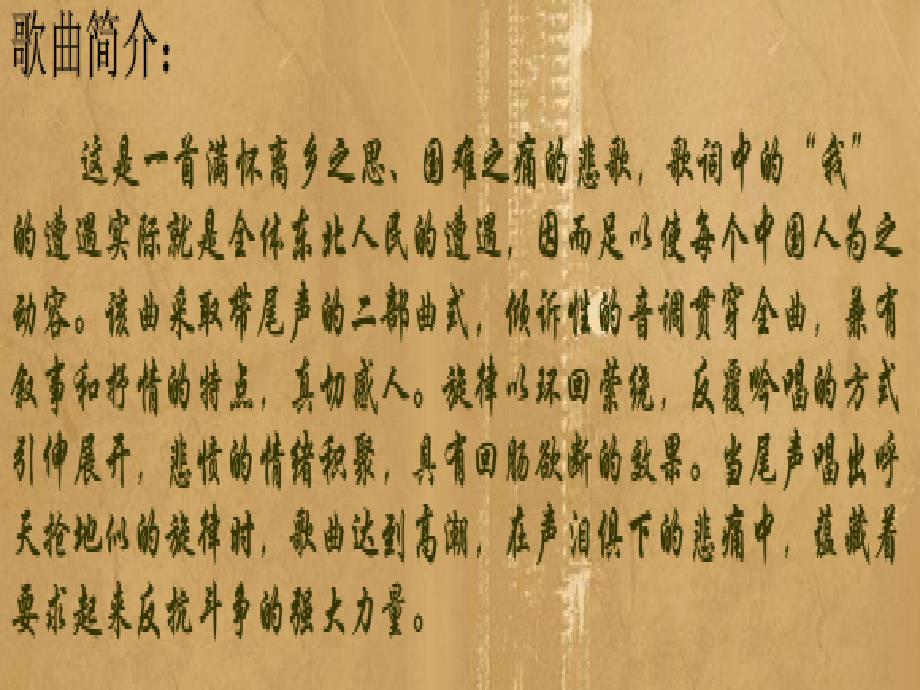 歌曲简介：
这是一首满怀离乡之思、国难之痛的悲歌，歌词中的“我”
的遭遇实际就是全体东北人民的遭遇，因而足以使每个中国人为之
动容。该曲采取带尾声的二部曲式，倾诉性的音调贯穿全曲，兼有
叙事和抒情的特点，真切感人。旋律以环回萦绕，反覆吟唱的方式
引伸展开，悲愤的情绪积聚，具有回肠欲断的效果。当尾声唱出呼
天抢地似的旋律时，歌曲达到高潮，在声泪俱下的悲痛中，蕴藏着
要求起来反抗斗争的强大力量。